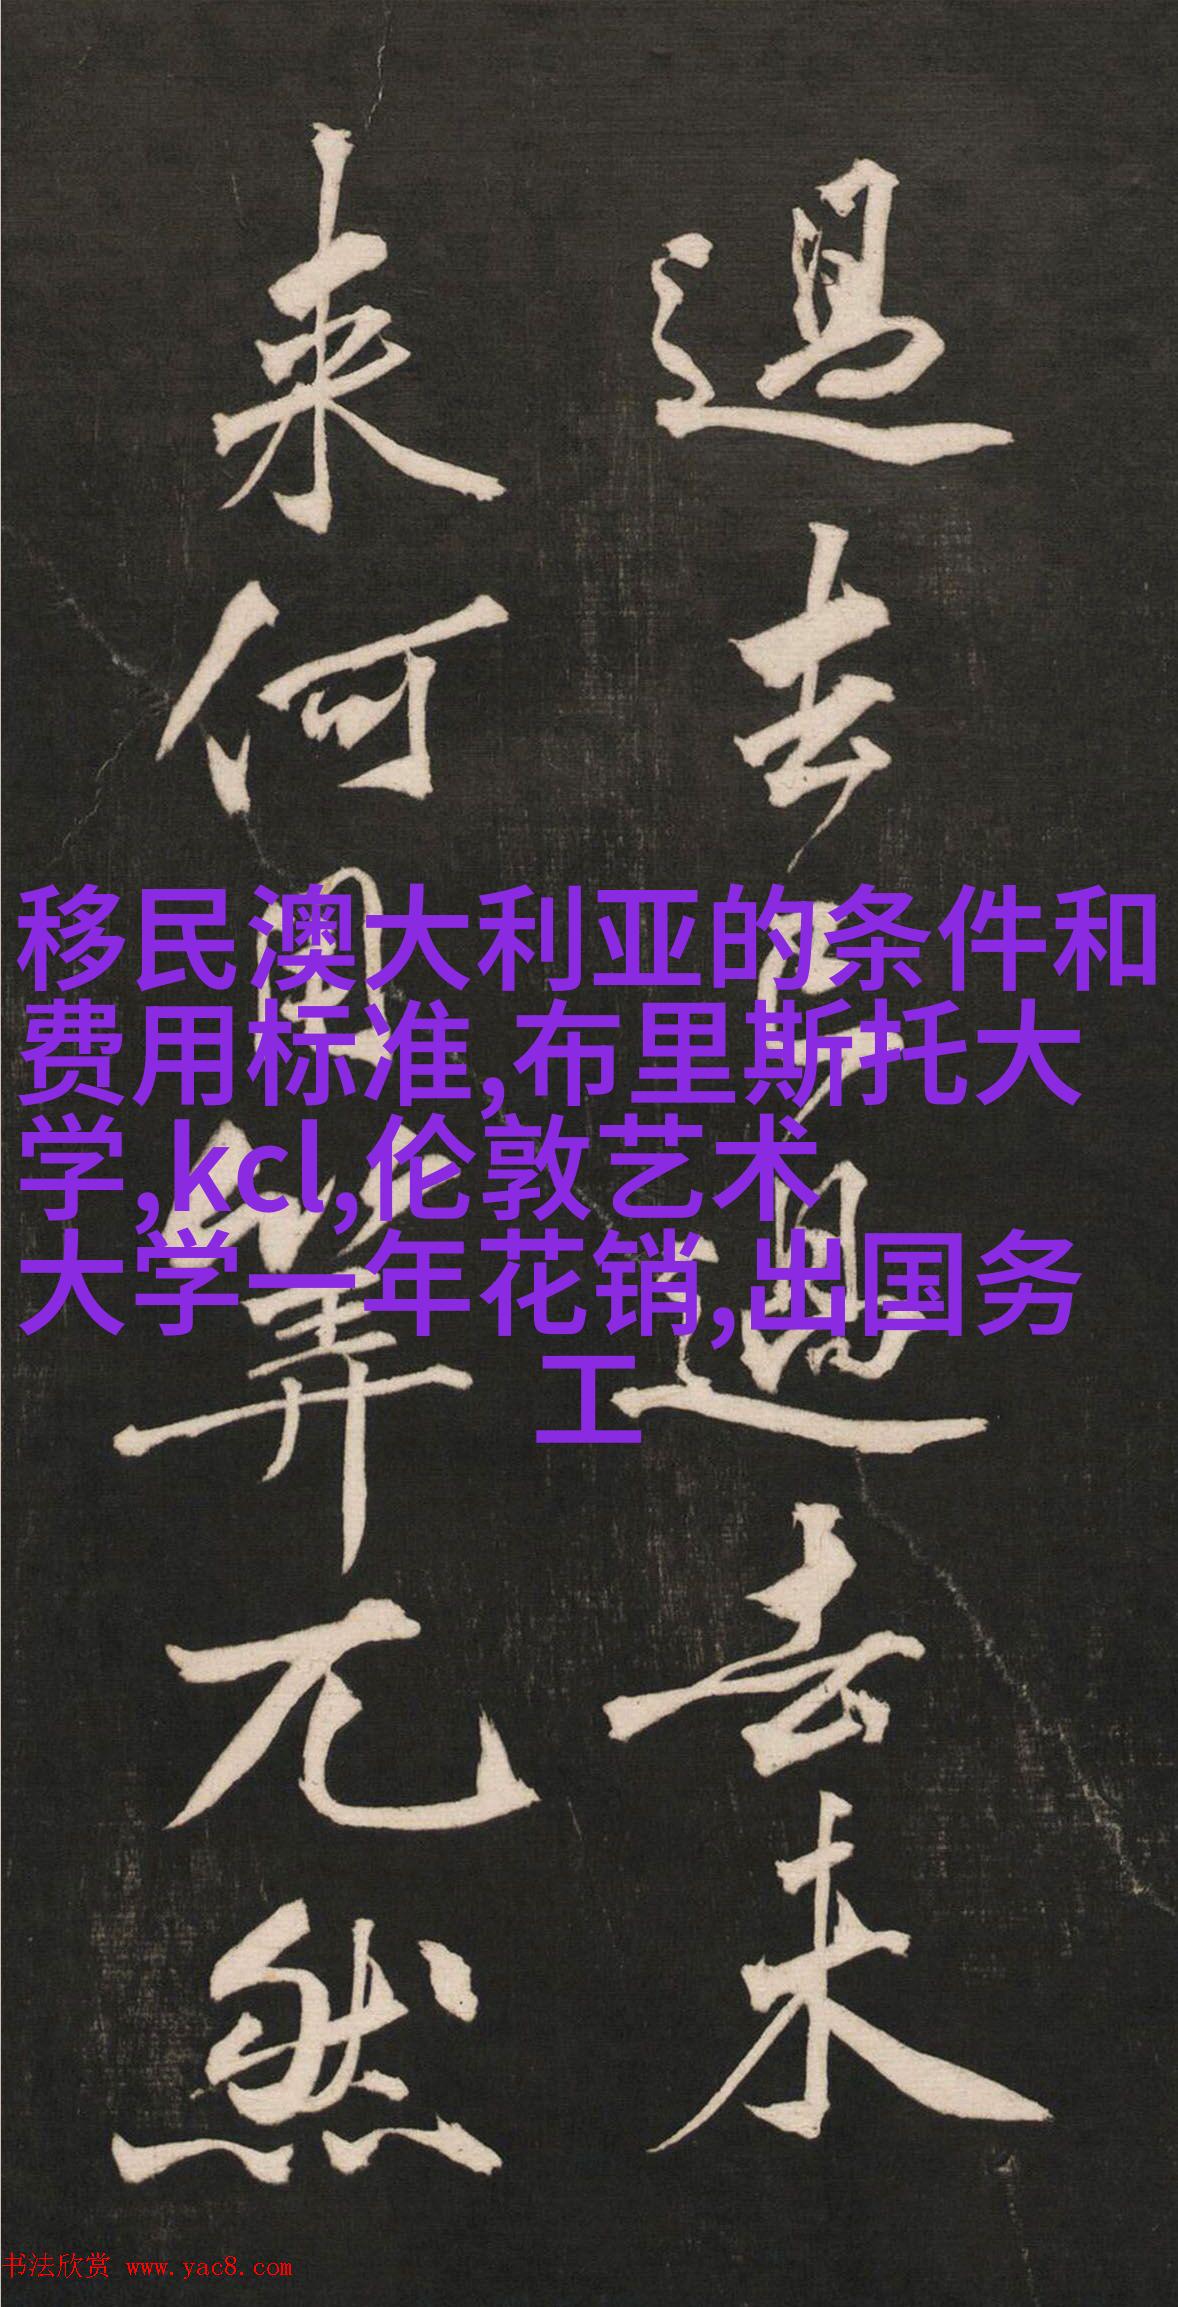 過去已過去未
来何用算兀然
移民澳大利亚的条件和
费用标准,布里斯托大
学,kcl,伦敦艺术
大学一年花销,出国务
工
书法欣赏 www.yac8.com